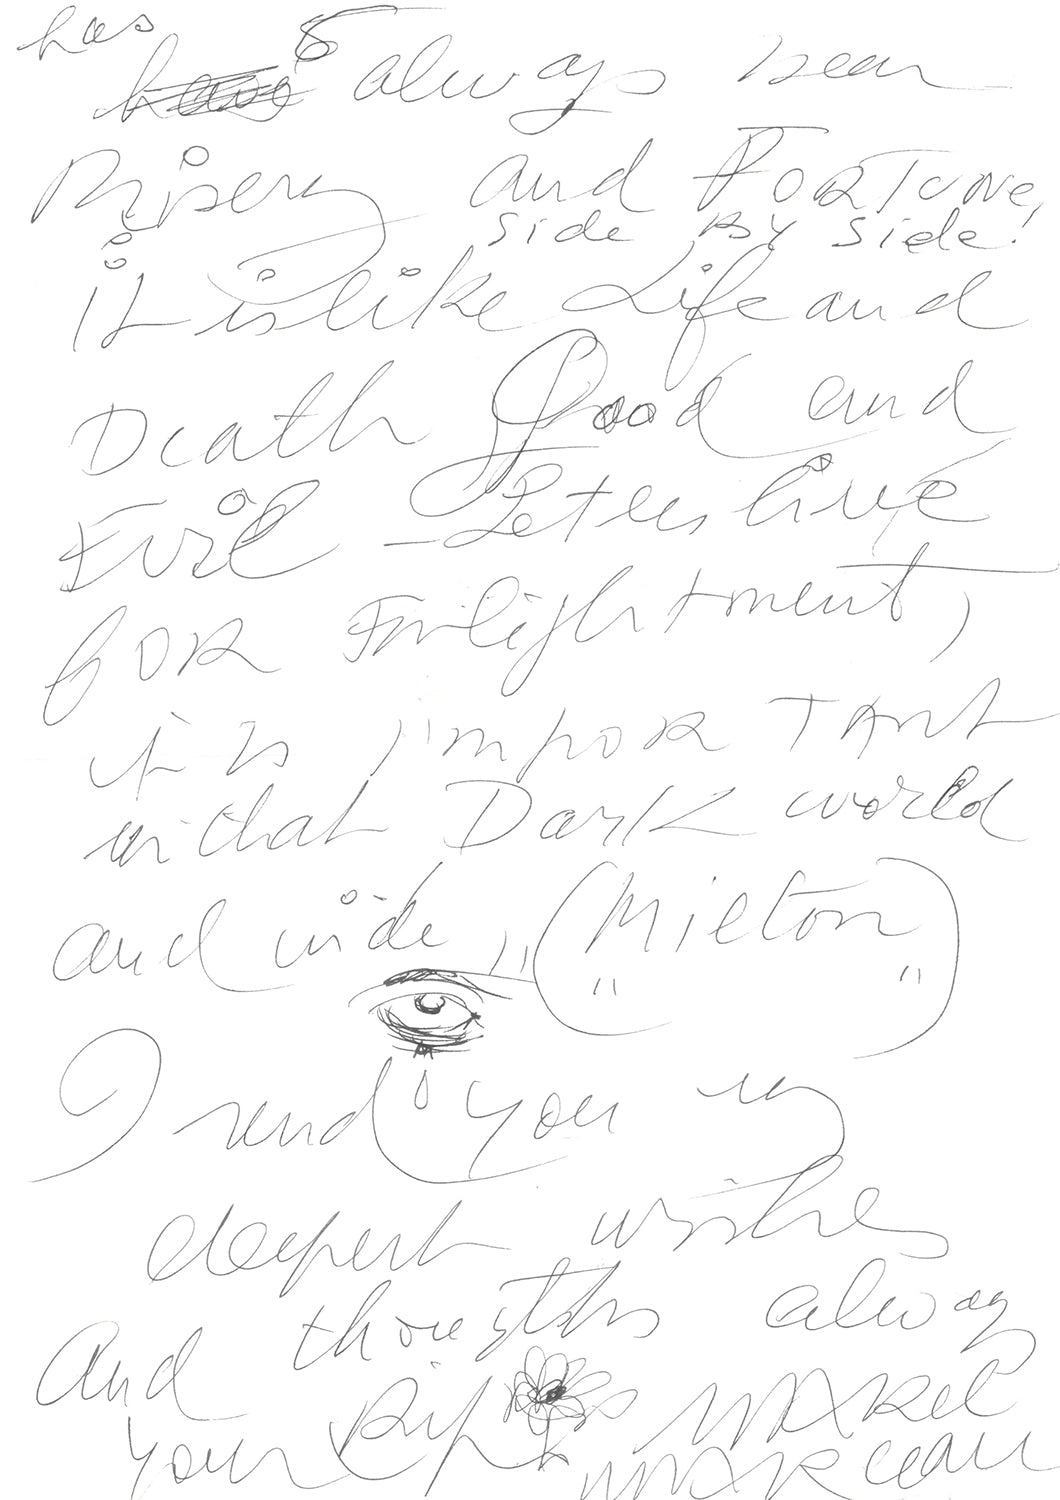 has 6
always been
Misery and FORTUNE,
side BY side!
it is like Life and
Death Good and
Evil - Let us live
FOR Enlightment,
it is impORTAnt
in that Dark world
and wide, " (Milton)
" "
I send you my
deepest wishes
and thougths always
your Bip MARCEL
MARCEAU